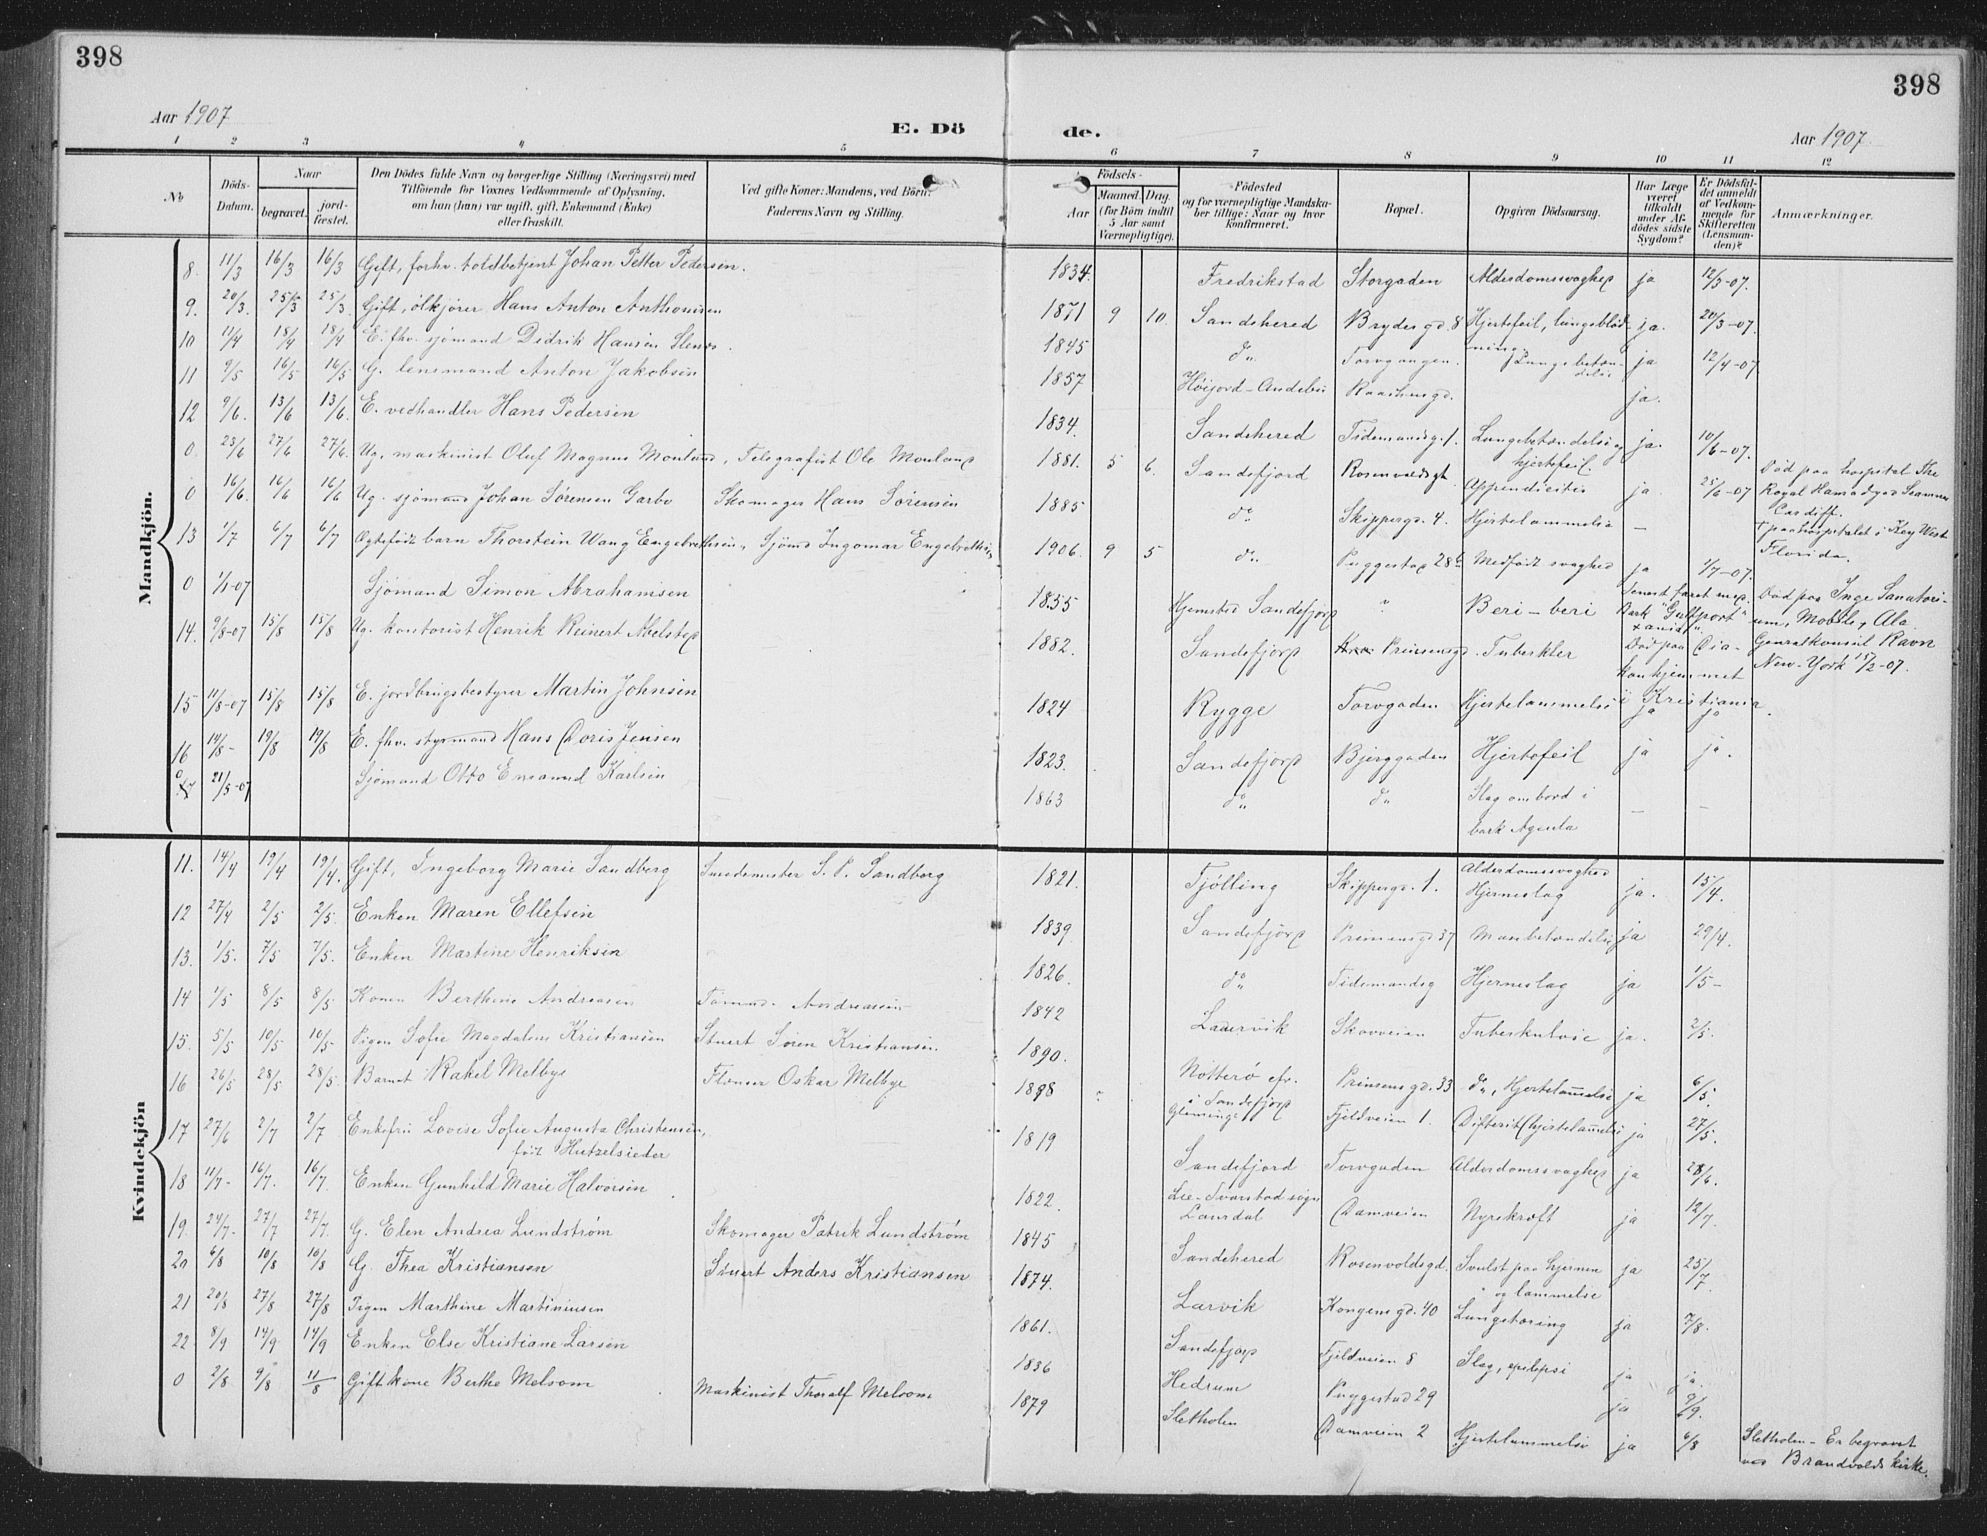 398
398
Aar 1907
E. Dö de.
Aar 1907
1 2 3 4 5 6 7 8 9 10 11 12
No
Döds-Datum.
Naar
begravet.
jord-fæstet.
Den Dödes fulde Navn og borgerlige Stilling (Næringsvei) med
Tilföiende for Voxnes Vedkommende af Oplysning,
om han (hun) var ugift, gift, Enkemand (Enke)
eller fraskilt.
Ved gifte Koner: Mandens, ved Börn:
Faderens Navn og Stilling.
Födsels-
Aar
Maaned. Dag.
(for Börn indtil
5 Aar samt
Værnepligtige).
Födested
og for værnepligtige Mandska-
ber tillige: Naar og hvor
konfirmeret.
Bopæl.
Opgiven Dödsaarsag.
Har Læge
været
tilkaldt
under Af-
dödes sidste
Sygdom?
Er Dödsfal-
det anmeldt
af Vedkom-
mende for
Skifteretten
(Lensman-
den)?
Anmærkninger.
Mandkjön.
8. 11/3 16/3 16/3 Gift, forhv. toldbetjent Johan Petter Pedersen. 1834. Fredrikstad Storgaden Alderdomssvaghed ja 12/3-07.
9. 20/3. 25/3 25/3. Gift, ølkjører Hans Anton Anthonisen 1871 9 10. Sandehered Brydesgd. 8 Hjertefeil, lungeblødning. ja. 20/3-07.
10 11/4 18/4 18/4 E. fhv. sjømand Didrik Hansen 1845 do Lungebetændelse ja 12/4-07
11 9/5 16/5 16/5 G. lensmand Anton Jakobsen 1857 Høijord-Andebu ja.
12 9/6. 13/6 13/6. E. vedhandler Hans Pedersen 1834. Sandehered Tidemandsg. 1. Lungebetændelse og hjertefeil. ja. 10/6-07.
0. 23/6 27/6 27/6. Ug. maskinist Oluf Magnus Mouland, Telegrafist Ole Mouland 1881. 5 6. Sandefjord Rosenvoldsgt Appendicitis ja. 25/6-07 Død paa hospital The Royal Seamens Cardiff.
0 16/6. 16/6 16/6 Ug. sjømand Johan Sørensen Garbo Skomager Hans Sørensen 1885 do Skippergd. 4. Hjertelammelse — † paa hospitalet i Key West Florida.
13 1/7 6/7 6/7 Ægtefødt barn Thorstein Wang Engebrethsen, Sjømd Ingomar Engebrethsen 1906. 9 5 do Puggestad 28 b Medfødt svaghed ja 1/7-07.
0 Sjømand Simon Abrahamsen 1855 Hjemsted Sandefjord " Beri-beri Senest faret med Bark "Gulfport" Død paa Inge Sanatorium, Mobile, Ala. Genralkonsul Ravn New-York 15/2-07.
14. 9/8-07 15/8 15/8 Ug. kontorist Henrik Reinert Abelsted 1882. Sandefjord Prinsensgd. Tuberkler Død paa Diakonhjemmet i Kristiania.
15 11/8-07 15/8 15/8 E. jordbrugsbestyrer Martin Johnsen 1824 Rygge Torvgaden Hjertelammelse ja ja
16 14/8- 19/8 19/8 E. fhv. styrmand Hans Doris Jensen 1823. Sandefjord Bjerggaden Hjertefeil ja ja.
0 21/5-07 Sjømand Otto Emanuel Karlsen 1863 do do Slag ombord i bark Agenta — —
Kvindekjön
11. 14/4 19/4 19/4. Gift, Ingeborg Marie Sandberg Smedemester S. P. Sandberg 1821. Tjølling Skippergd. 1. Alderdomssvaghed Hjerneslag ja. 15/4.
12 27/4 2/5 2/5. Enken Maren Ellefsen 1839 Sandefjord Prinsensgd 37 ja 29/4.
13. 1/5. 7/5 7/5. Enken Martine Henriksen 1826. do Tidemandsg Hjerneslag ja 1/5-
14 1/5 8/5 8/5 Konen Berthine Andreasen Andreassen 1842 Laurvik Skovveien Tuberkulose ja. 2/5.
15. 5/5 10/5 10/5 Pigen Sofie Magdalene Kristiansen Stuert Søren Kristiansen. 1890. Nøtterø Prinsensgd. 33 do, Hjertelammelse ja 6/5.
16 26/5 28/5 28/5. Barnet Rakel Melbye Flenser Oskar Melbye 1898 Sandefjord Fjeldveien 1. Difterit (hjertelammelse ja 27/5.
17 27/6 2/7 2/7 Enkefru Lovise Sofie Augusta Christensen, født Hutzelsieder 1819 Sandefjord Torvgaden Alderdomssvaghed ja 28/6.
18 11/7- 16/7. 16/7 Enken Gunhild Marie Halvorsen 1822. Damveien Nyrekræft ja 12/7.
19. 24/7- 27/7 27/7. G. Elen Andrea Lundstrøm Skomager Patrik Lundstrøm 1845 Sandehered Rosenvoldsgd. Svulst paa hjernen og lammelse ja 25/7.
20 6/8 10/8 10/8 G. Thea Kristiansen Stuert Anders Kristiansen 1874. Larvik Kongensgd. 40 Lungetæring ja 7/8.
21 20/8 27/8 27/8 Pigen Marthine Martiniusen 1861. Sandefjord Fjeldveien 8 Slag, epilepsi ja ja.
22 8/9 14/9 14/9 Enken Else Kristiane Larsen 1836 Hedrum Puggestad 29 ja 9/9.
0 2/8 9/8 11/8 Gift kone Berthe Melsom Maskinist Thoralf Melsom 1879 Sletholen Damveien 2 Hjertelammelse ja 6/8 Sletholen - Er begravet ved Brandvolds kirke.